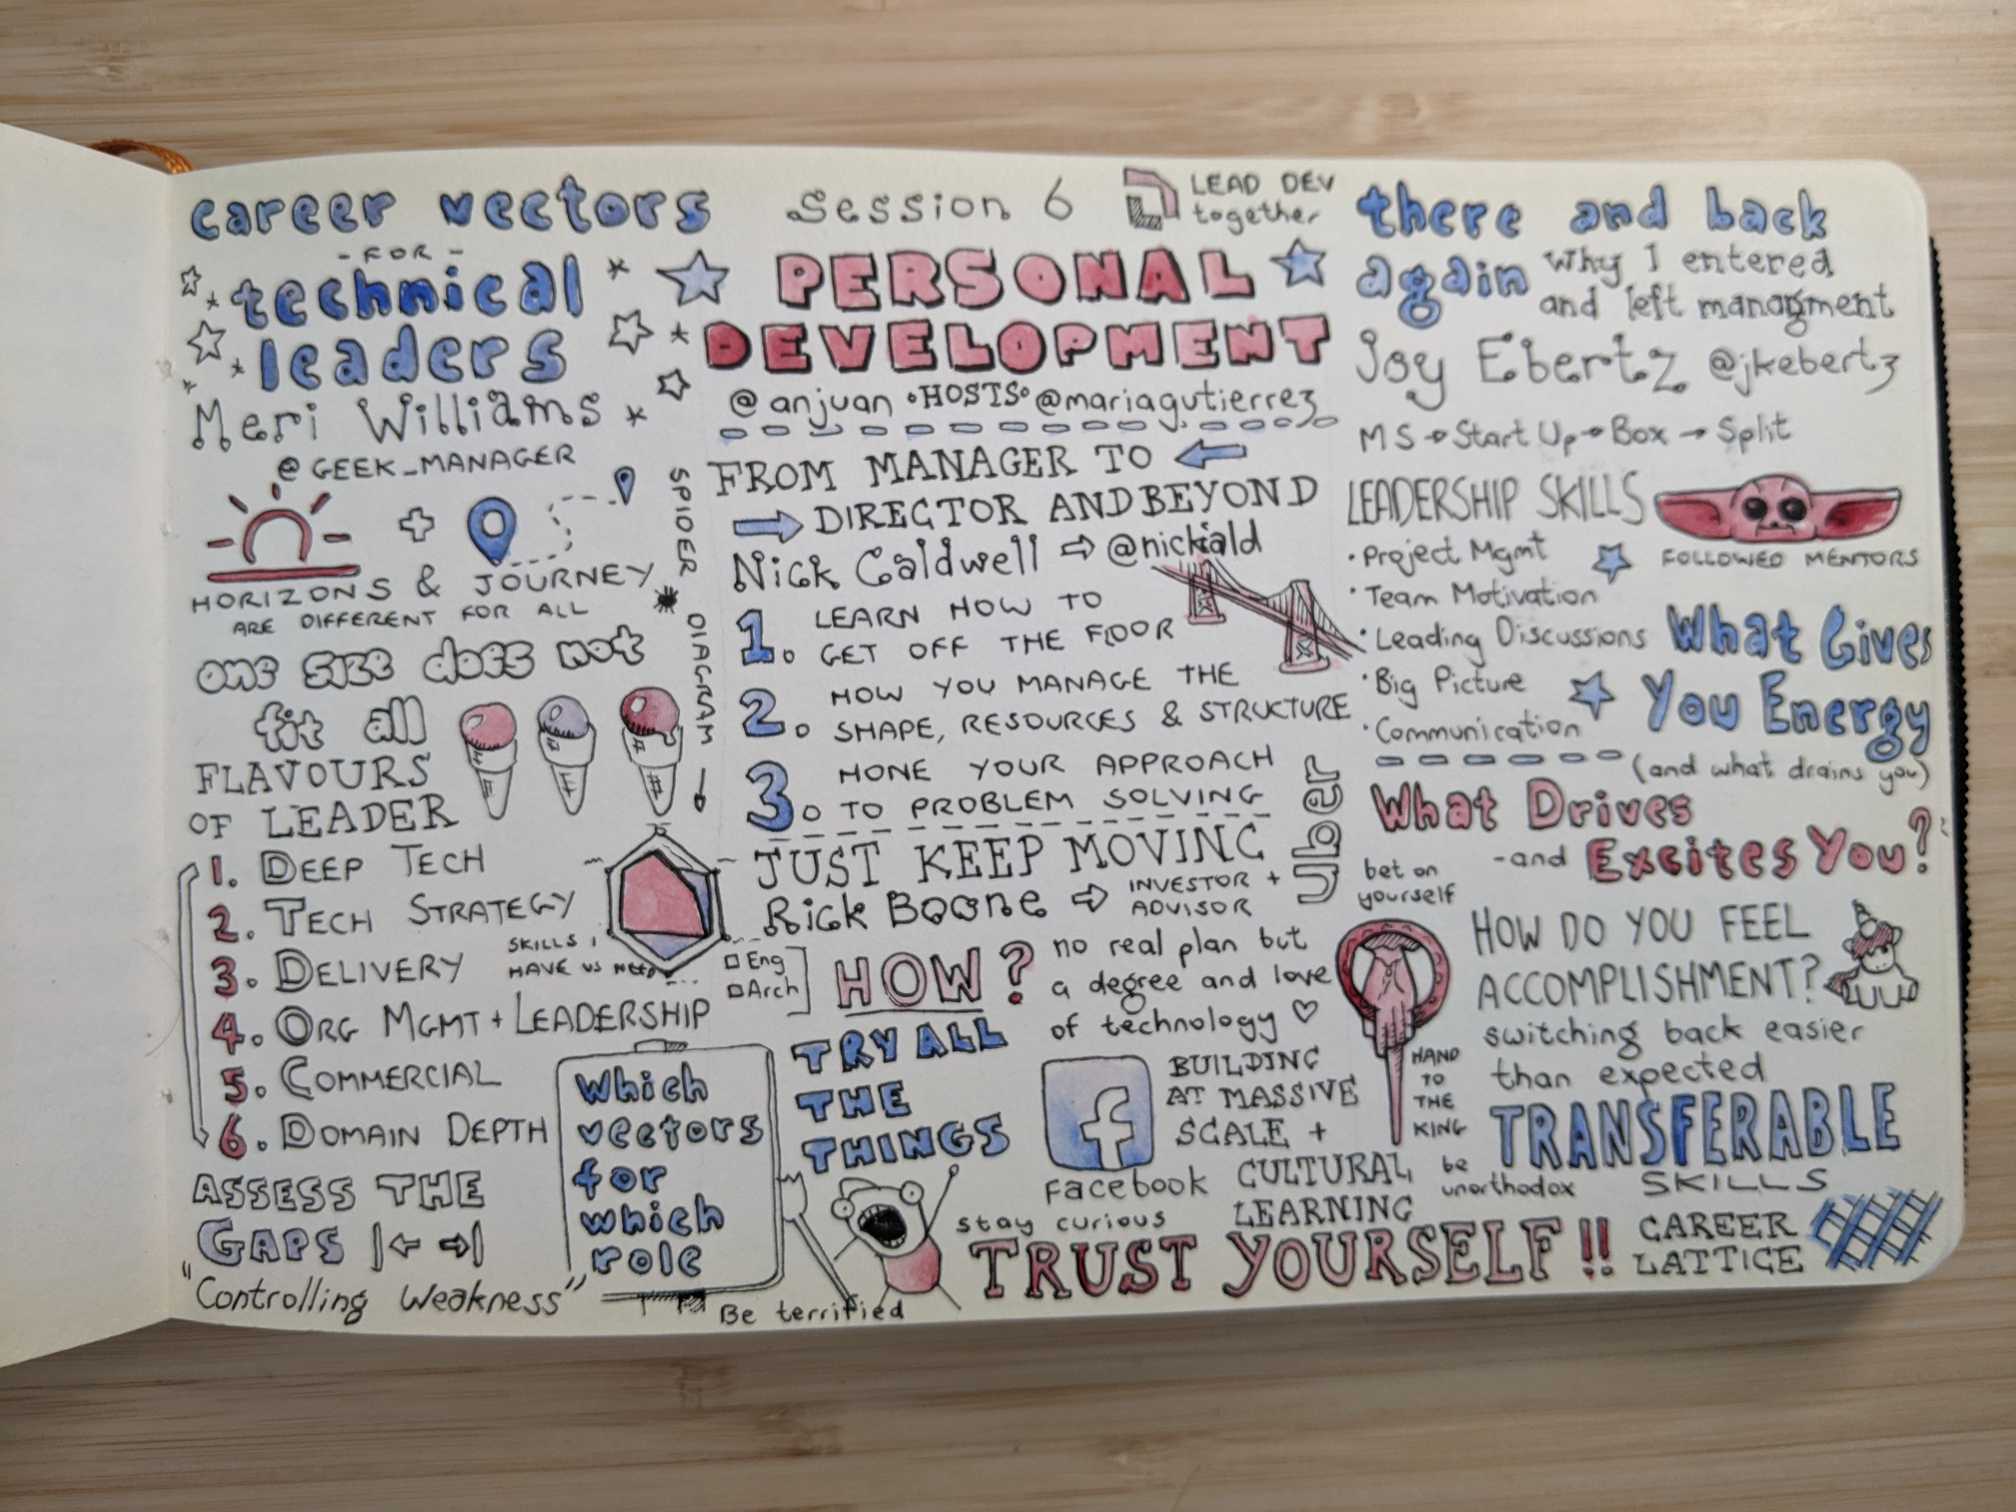 career vectors
- FOR -
technical
leaders
Meri Williams
@GEEK_MANAGER
HORIZONS & JOURNEY
ARE DIFFERENT FOR ALL
one size does not
fit all
FLAVOURS
OF LEADER
1. DEEP TECH
2. TECH STRATEGY
3. DELIVERY
4. ORG MGMT + LEADERSHIP
5. COMMERCIAL
6. DOMAIN DEPTH
SPIDER DIAGRAM
SKILLS I
HAVE VS NEED
Eng
Arch
ASSESS THE
GAPS
"Controlling Weakness"
which
vectors
for
which
role
Session 6
LEAD DEV
together
PERSONAL
DEVELOPMENT
@anjuan •HOSTS• @mariagutierrez
FROM MANAGER TO
DIRECTOR AND BEYOND
Nick Caldwell ⇨ @nickald
1. LEARN HOW TO
GET OFF THE FLOOR
2. HOW YOU MANAGE THE
SHAPE, RESOURCES & STRUCTURE
3. HONE YOUR APPROACH
TO PROBLEM SOLVING
JUST KEEP MOVING
Rick Boone ⇨ INVESTOR +
ADVISOR
Uber
HOW?
no real plan but
a degree and love
of technology ♡
TRY ALL
THE
THINGS
Be terrified
f
Facebook
BUILDING
AT MASSIVE
SCALE +
CULTURAL
LEARNING
stay curious
TRUST YOURSELF!!
bet on
yourself
HAND
TO
THE
KING
be
unorthodox
there and back
again why I entered
and left managment
Joy Ebertz @jkebertz
MS → Start Up → Box → Split
LEADERSHIP SKILLS
• Project Mgmt
• Team Motivation
• Leading Discussions
• Big Picture
• Communication
FOLLOWED MENTORS
What Gives
You Energy
(and what drains you)
What Drives
-and Excites You?
HOW DO YOU FEEL
ACCOMPLISHMENT?
switching back easier
than expected
TRANSFERABLE
SKILLS
CAREER
LATTICE